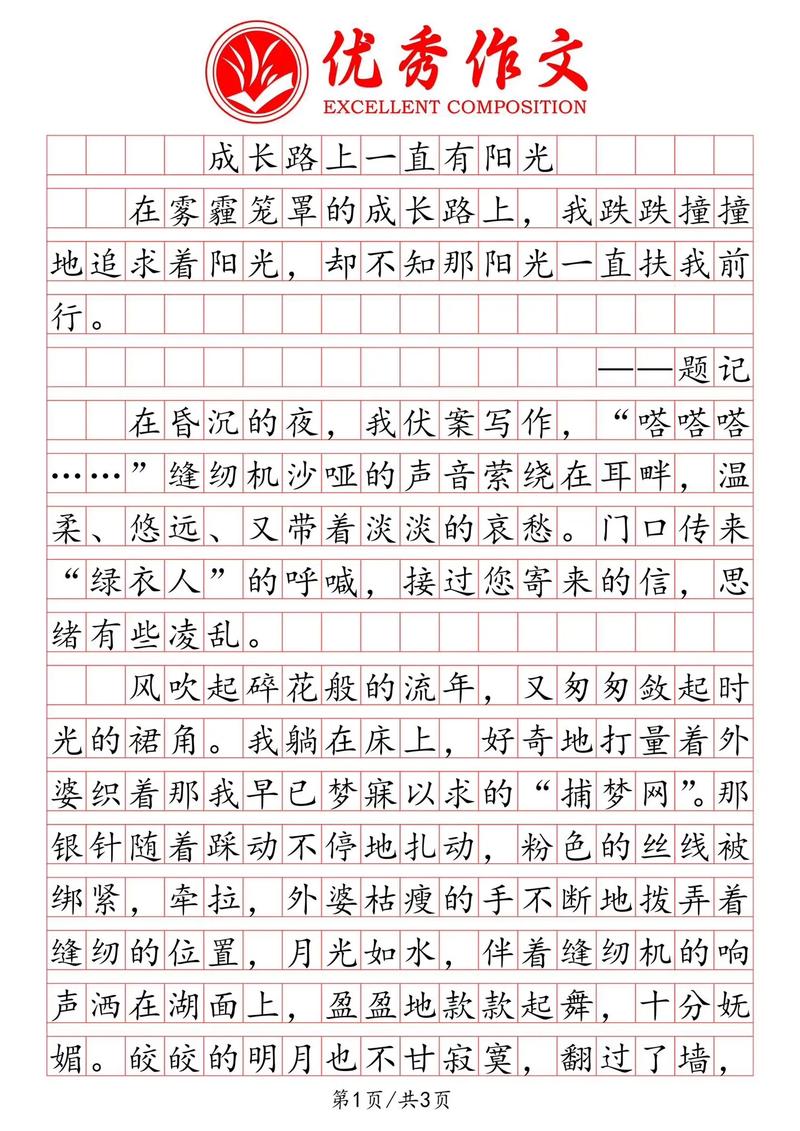 优秀作文
EXCELLENT COMPOSITION
成长路上一直有阳光
在雾霾笼罩的成长路上，我跌跌撞撞
地追求着阳光，却不知那阳光一直扶我前
行。
——题记
在昏沉的夜，我伏案写作，“嗒嗒嗒
……”缝纫机沙哑的声音萦绕在耳畔，温
柔、悠远、又带着淡淡的哀愁。门口传来
“绿衣人”的呼喊，接过您寄来的信，思
绪有些凌乱。
风吹起碎花般的流年，又匆匆敛起时
光的裙角。我躺在床上，好奇地打量着外
婆织着那我早已梦寐以求的“捕梦网”。那
银针随着踩动不停地扎动，粉色的丝线被
绑紧，牵拉，外婆枯瘦的手不断地拨弄着
缝纫的位置，月光如水，伴着缝纫机的响
声洒在湖面上，盈盈地款款起舞，十分妩
媚。皎皎的明月也不甘寂寞，翻过了墙，
第1页/共3页